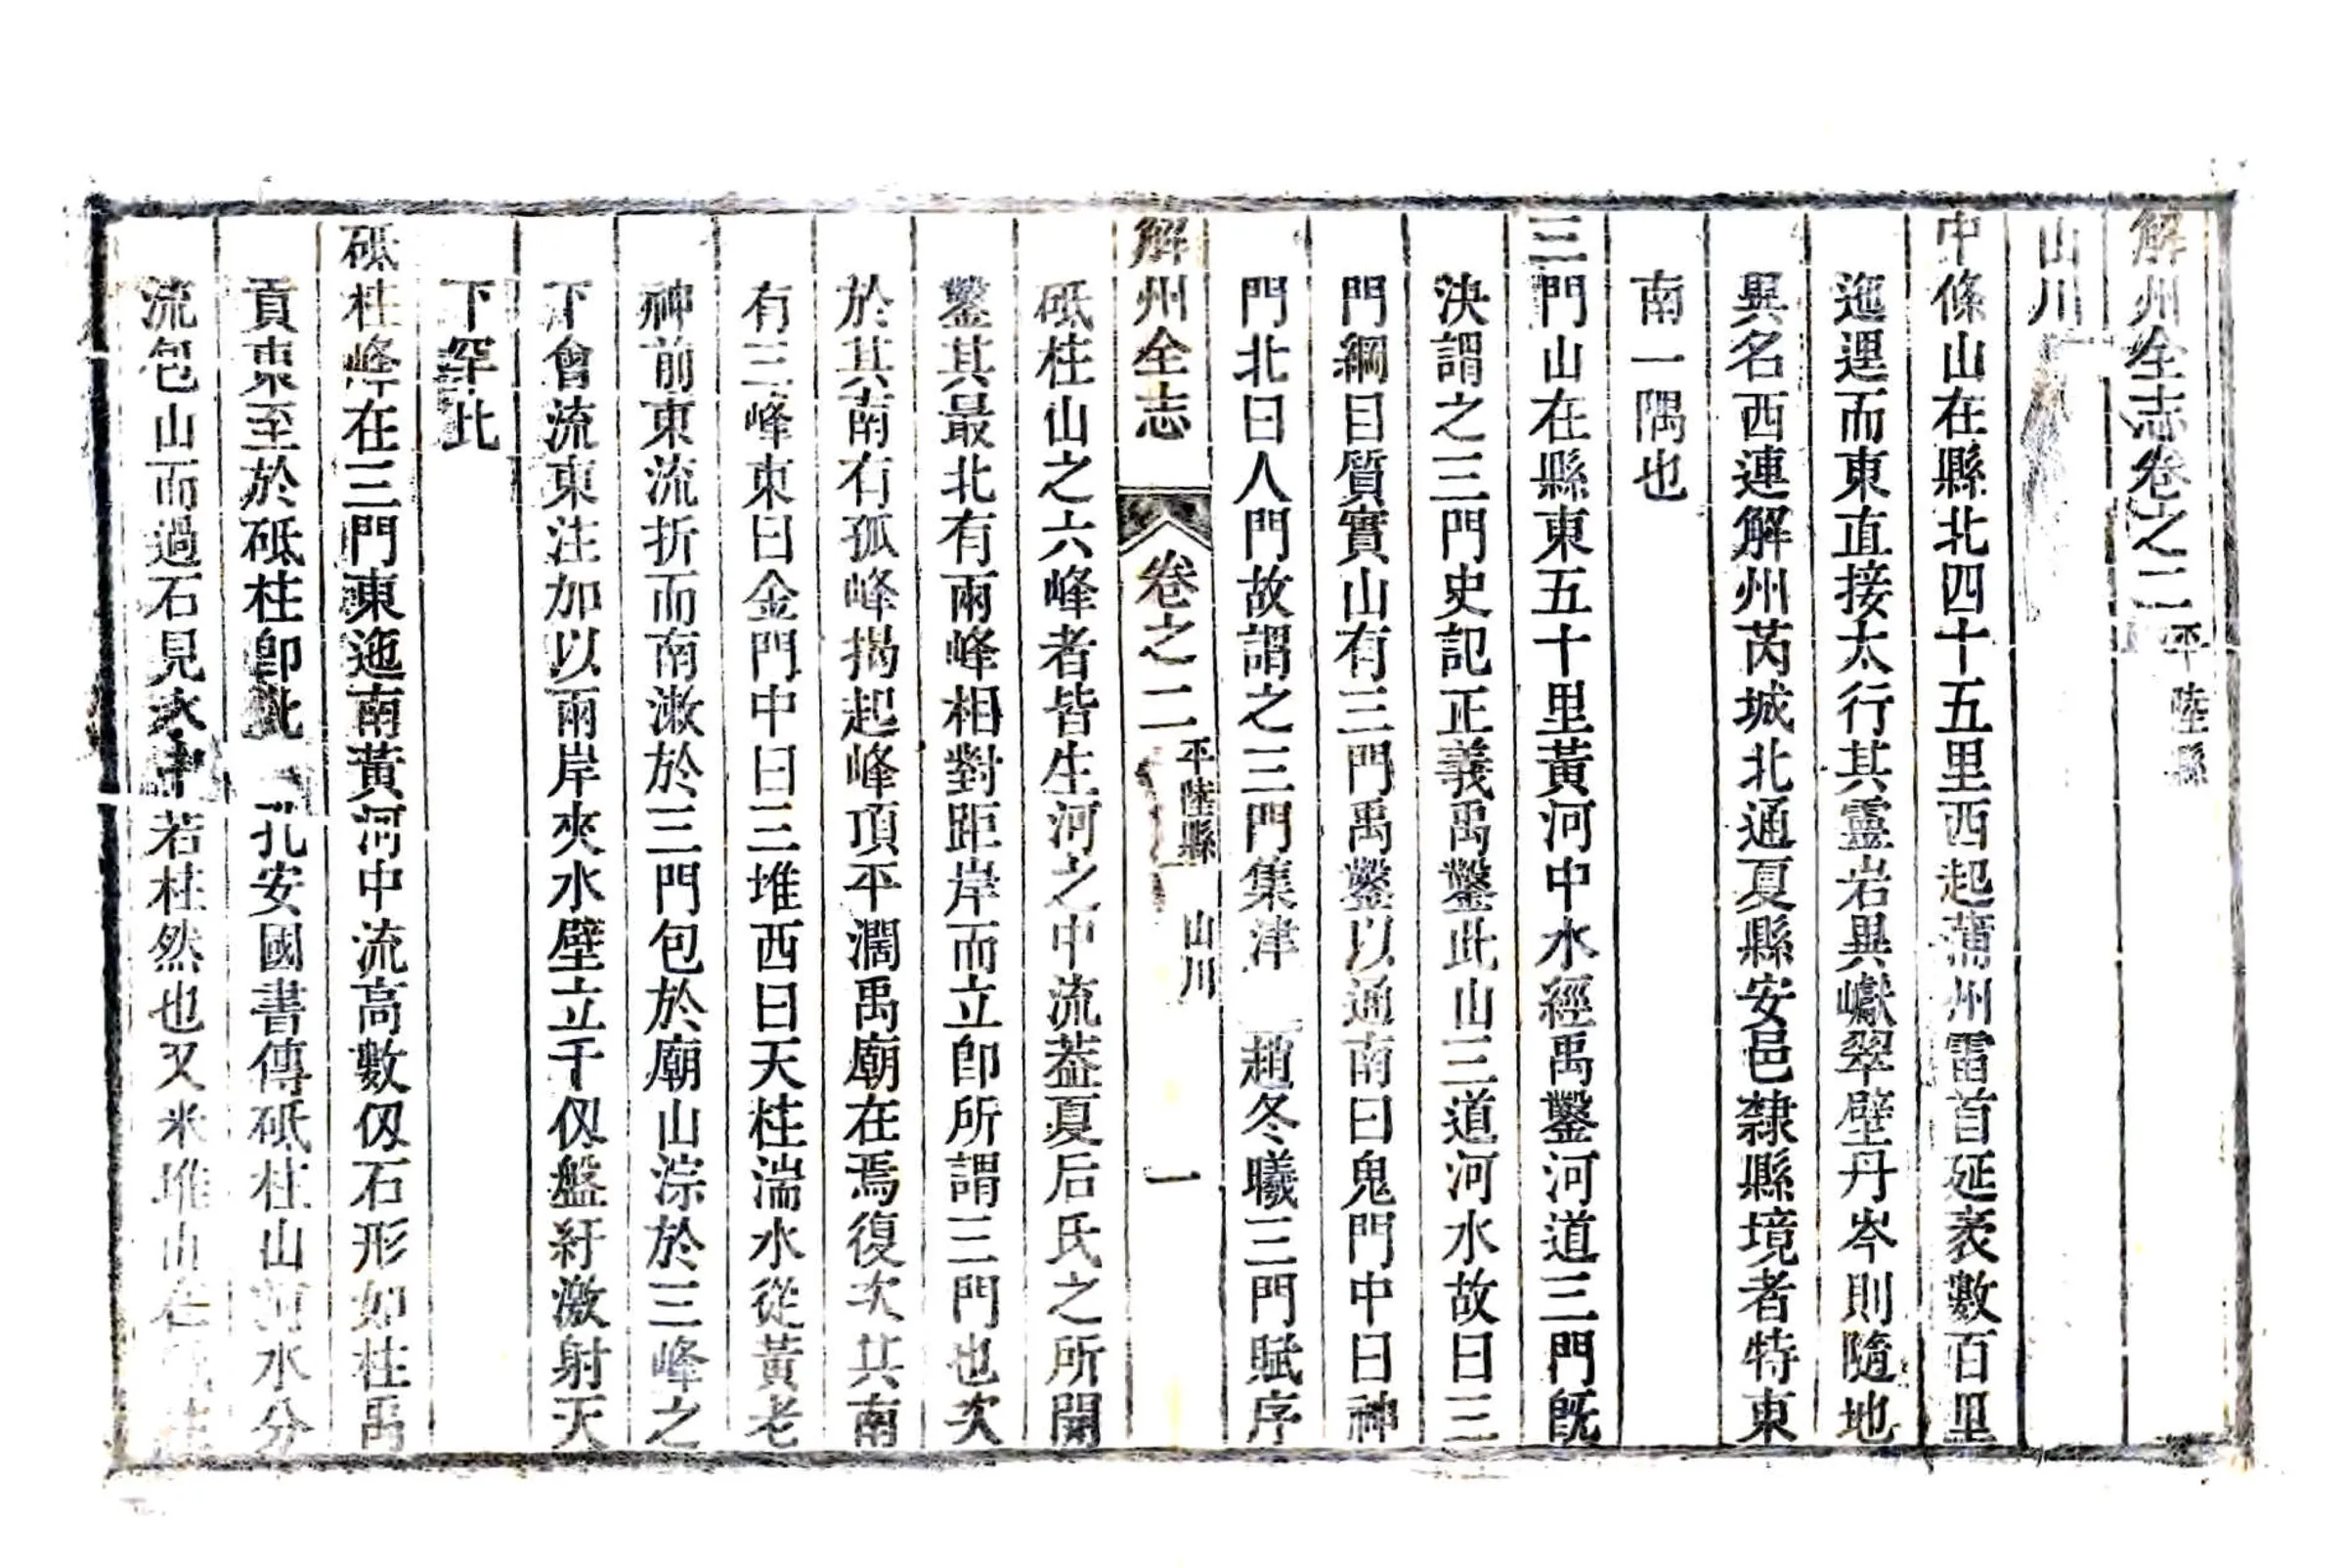 解州全志卷之二平陸縣
山川
中條山在縣北四十五里西起蒲州雷首延袤數百里
迤邐而東直接太行其靈岩異巘翠壁丹岑則隨地
異名西連解州芮城北通夏縣安邑隸縣境者特東
南一隅也
三門山在縣東五十里黃河中水經禹鑿河道三門旣
決謂之三門史記正義禹鑿此山三道河水故曰三
門綱目質實山有三門禹鑿以通南曰鬼門中曰神
門北曰人門故謂之三門集津 趙冬曦三門賦序
解州全志 卷之二 平陸縣 山川 一
砥柱山之六峰者皆生河之中流葢夏后氏之所開
鑿其最北有兩峰相對距岸而立卽所謂三門也次
於其南有孤峰揭起峰頂平濶禹廟在焉復次其南
有三峰東曰金門中曰三堆西曰天柱湍水從黃老
神前東流折而南漱於三門包於廟山淙於三峰之
下會流東注加以兩岸夾水壁立千仭盤紆激射天
下罕此
砥柱峰在三門東迤南黃河中流高數仭石形如柱禹
貢東至於砥柱卽此 孔安國書傳砥柱山河水分
流包山而過石見水中若柱然也又米堆山在